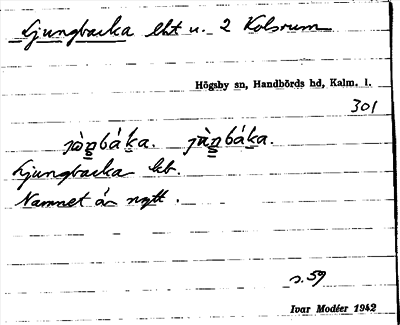 Ljungbacka lht u. 2 Kolsrum
Högsby sn, Handbörds hd, Kalm. l.
301
jòṉbáka. jàṉbáka.
Ljungbacka kb.
Namnet är nytt.
s. 59
Ivar Modéer 1942